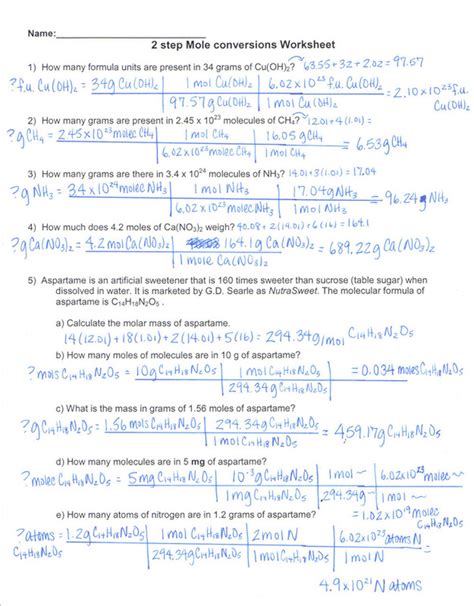 Name:
2 step Mole conversions Worksheet
1) How many formula units are present in 34 grams of Cu(OH)₂? 63.55+32+2.02=97.57
?f.u. Cu(OH)₂ = 34g Cu(OH)₂ | 1 mol Cu(OH)₂ | 6.02×10²³ f.u. Cu(OH)₂ = 2.10×10²³ f.u. Cu(OH)₂
97.57g Cu(OH)₂ | 1 mol Cu(OH)₂
2) How many grams are present in 2.45 x 10²³ molecules of CH₄? 12.01+4(1.01)=
?g CH₄ = 2.45×10²³ molec CH₄ | 1 mol CH₄ | 16.05g CH₄ = 6.53g CH₄
6.02×10²³ molec CH₄ | 1 mol CH₄
3) How many grams are there in 3.4 x 10²⁴ molecules of NH₃? 14.01+3(1.01)=17.04
?g NH₃ = 3.4×10²⁴ molec NH₃ | 1 mol NH₃ | 17.04g NH₃ = 96.24g NH₃
6.02×10²³ molec NH₃ | 1 mol NH₃
4) How much does 4.2 moles of Ca(NO₃)₂ weigh? 40.08+2(14.01)+6(16)=164.1
?g Ca(NO₃)₂ = 4.2 mol Ca(NO₃)₂ | 164.1g Ca(NO₃)₂ = 689.22g Ca(NO₃)₂
1 mol Ca(NO₃)₂
5) Aspartame is an artificial sweetener that is 160 times sweeter than sucrose (table sugar) when
dissolved in water. It is marketed by G.D. Searle as NutraSweet. The molecular formula of
aspartame is C₁₄H₁₈N₂O₅ .
a) Calculate the molar mass of aspartame.
14(12.01)+18(1.01)+2(14.01)+5(16)=294.34g/mol C₁₄H₁₈N₂O₅
b) How many moles of molecules are in 10 g of aspartame?
?mols C₁₄H₁₈N₂O₅ = 10g C₁₄H₁₈N₂O₅ | 1 mol C₁₄H₁₈N₂O₅ = 0.034 moles C₁₄H₁₈N₂O₅
294.34g C₁₄H₁₈N₂O₅
c) What is the mass in grams of 1.56 moles of aspartame?
?g C₁₄H₁₈N₂O₅ = 1.56 mols C₁₄H₁₈N₂O₅ | 294.34g C₁₄H₁₈N₂O₅ = 459.17g C₁₄H₁₈N₂O₅
1 mol C₁₄H₁₈N₂O₅
d) How many molecules are in 5 mg of aspartame?
?molec C₁₄H₁₈N₂O₅ = 5mg C₁₄H₁₈N₂O₅ | 10⁻³g C₁₄H₁₈N₂O₅ | 1 mol ~ | 6.02×10²³ molec
1mg C₁₄H₁₈N₂O₅ | 294.34g ~ | 1 mol ~
= 1.02×10¹⁹ molec C₁₄H₁₈N₂O₅
e) How many atoms of nitrogen are in 1.2 grams of aspartame?
?atoms = 1.2g C₁₄H₁₈N₂O₅ | 1 mol C₁₄H₁₈N₂O₅ | 2 mol N | 6.02×10²³ atoms N
294.34g C₁₄H₁₈N₂O₅ | 1 mol C₁₄H₁₈N₂O₅ | 1 mol N
4.9×10²¹ N atoms